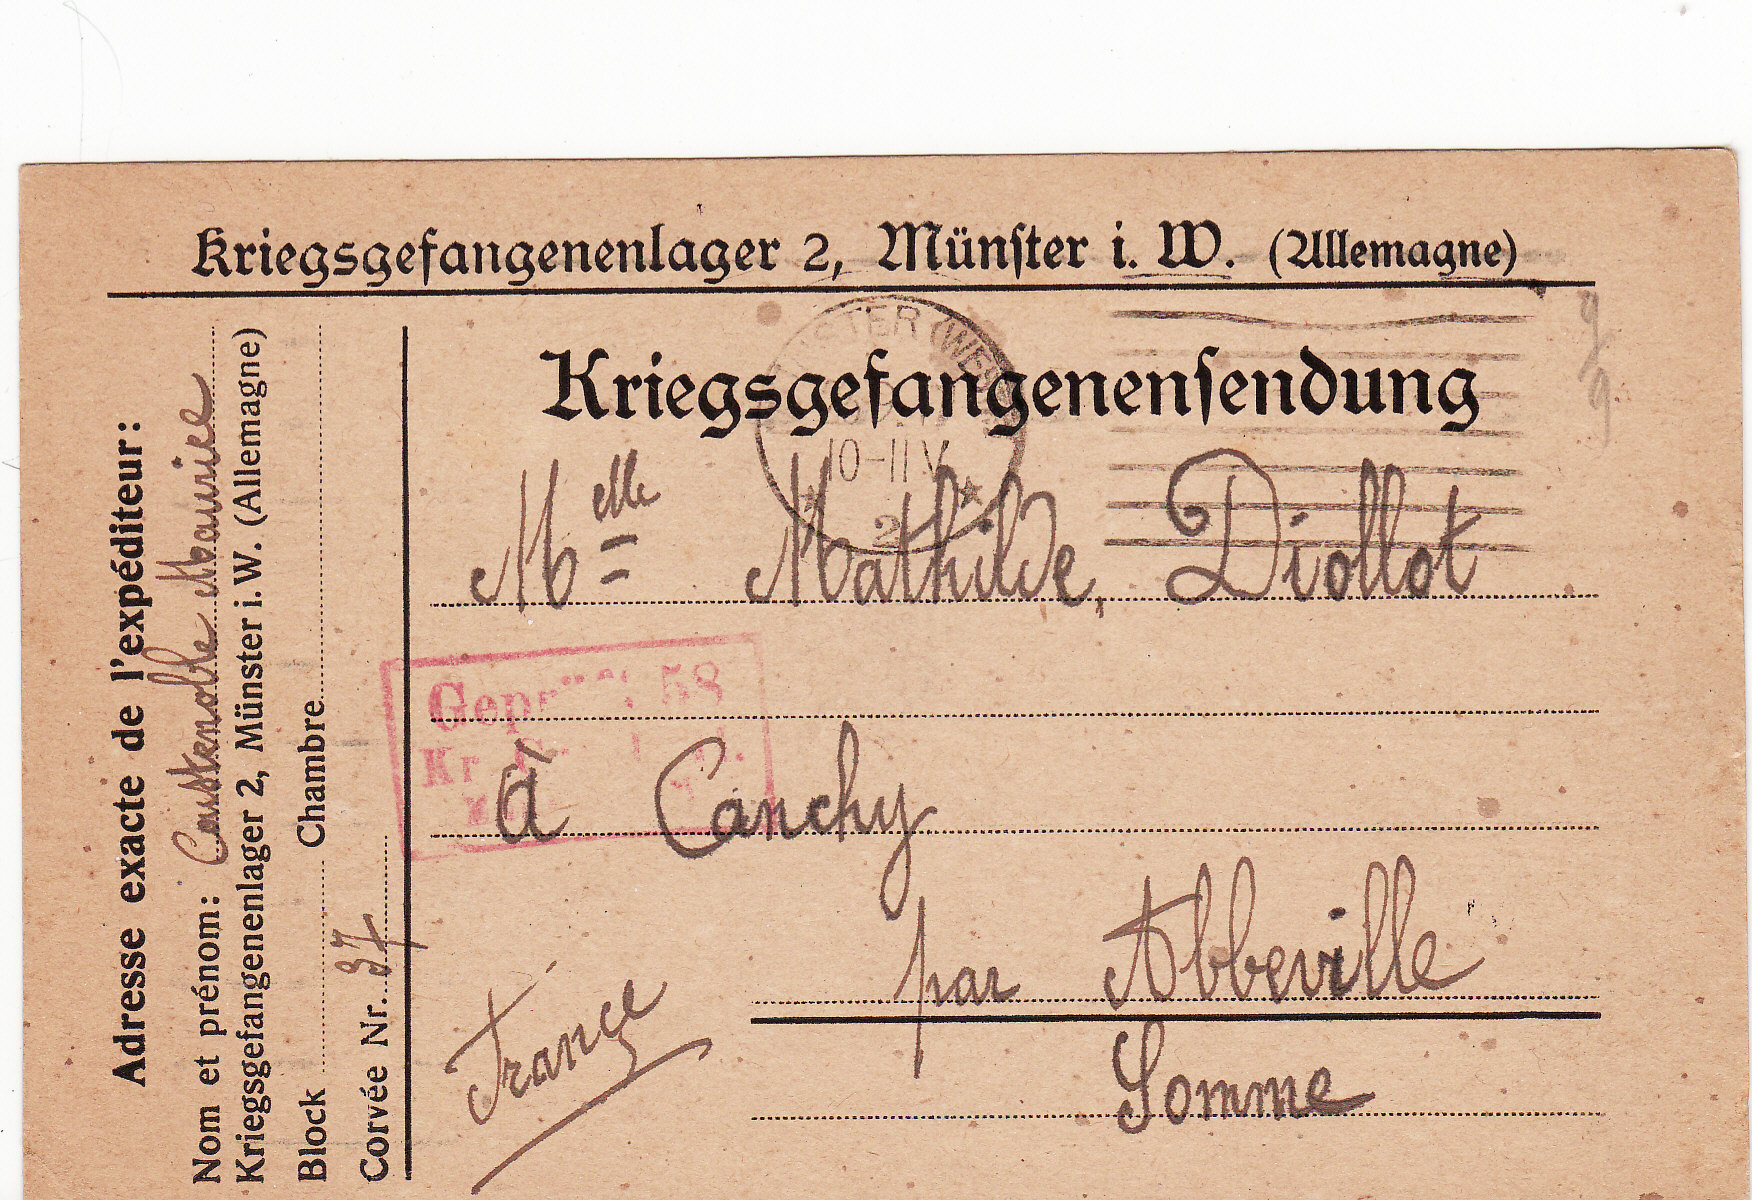 Kriegsgefangenenlager 2, Münster i. W. (Allemagne)
Kriegsgefangenensendung
MÜNSTER (WES
10-11 V
* 2 *
Mlle Mathilde, Diollot
Geprüft 58
Kr.
à Canchy
par Abbeville
Somme
France
Adresse exacte de l'expéditeur:
Nom et prénom: Coustenoble Maurice
Kriegsgefangenenlager 2, Münster i. W. (Allemagne)
Block Chambre
Corvée Nr. 37